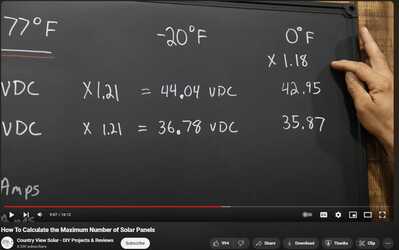 77°F -20°F 0°F
X 1.18
VDC X 1.21 = 44.04 VDC 42.95
VDC X 1.21 = 36.78 VDC 35.87
Amps
How To Calculate the Maximum Number of Solar Panels
Country View Solar - DIY Projects & Reviews
Subscribe
Share
Download
Thanks
Clip